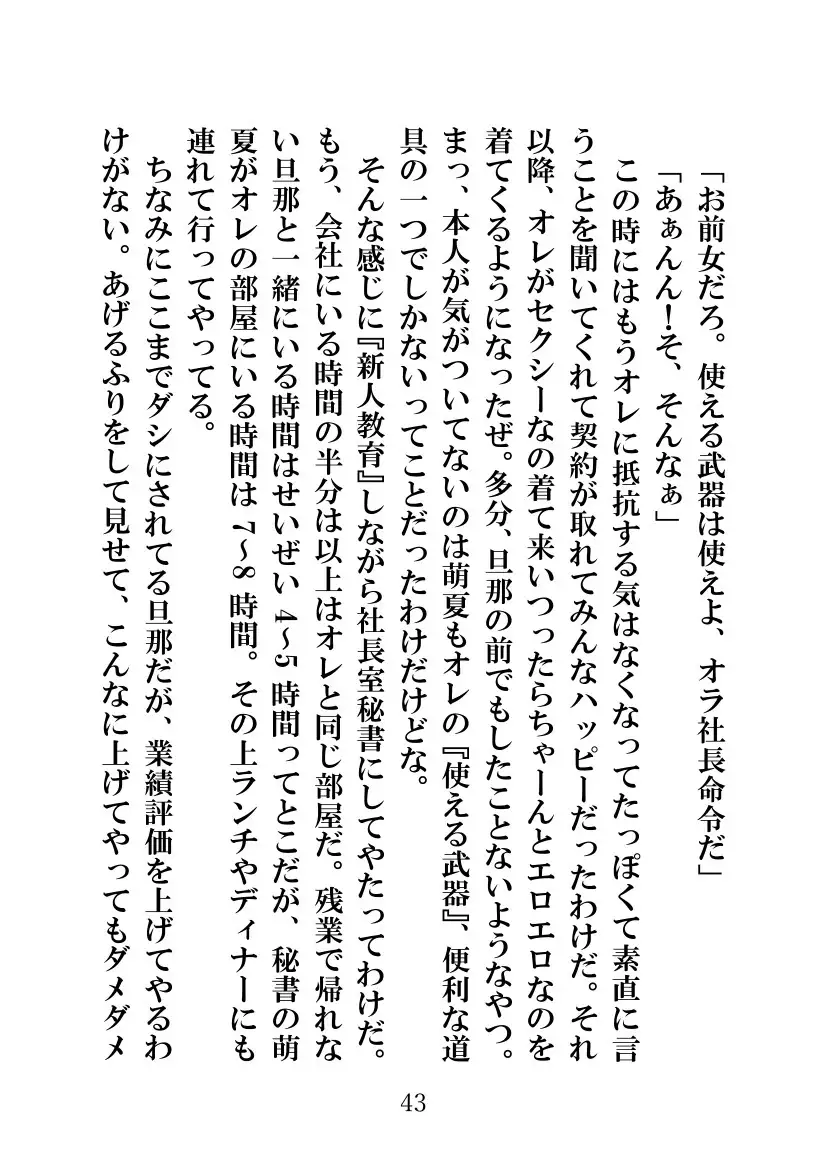 「お前女だろ。使える武器は使えよ、オラ社長命令だ」
「あぁんん！そ、そんなぁ」
この時にはもうオレに抵抗する気はなくなってたっぽくて素直に言
うことを聞いてくれて契約が取れてみんなハッピーだったわけだ。それ
以降、オレがセクシーなの着て来いつったらちゃーんとエロエロなのを
着てくるようになったぜ。多分、旦那の前でもしたことないようなやつ。
まっ、本人が気がついてないのは萌夏もオレの『使える武器』、便利な道
具の一つでしかないってことだったわけだけどな。
そんな感じに『新人教育』しながら社長室秘書にしてやたってわけだ。
もう、会社にいる時間の半分は以上はオレと同じ部屋だ。残業で帰れな
い旦那と一緒にいる時間はせいぜい 4〜5 時間ってとこだが、秘書の萌
夏がオレの部屋にいる時間は 7〜8 時間。その上ランチやディナーにも
連れて行ってやってる。
ちなみにここまでダシにされてる旦那だが、業績評価を上げてやるわ
けがない。あげるふりをして見せて、こんなに上げてやってもダメダメ
43